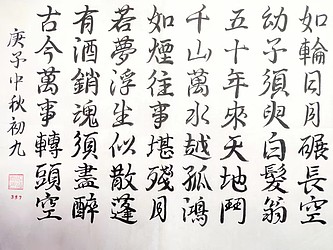 如輪日月碾長空
幼子須臾白髮翁
五十年來天地鬥
千山萬水越孤鴻
如煙往事堪殘月
若夢浮生似散蓬
有酒銷魂須盡醉
古今萬事轉頭空
庚子中秋初九